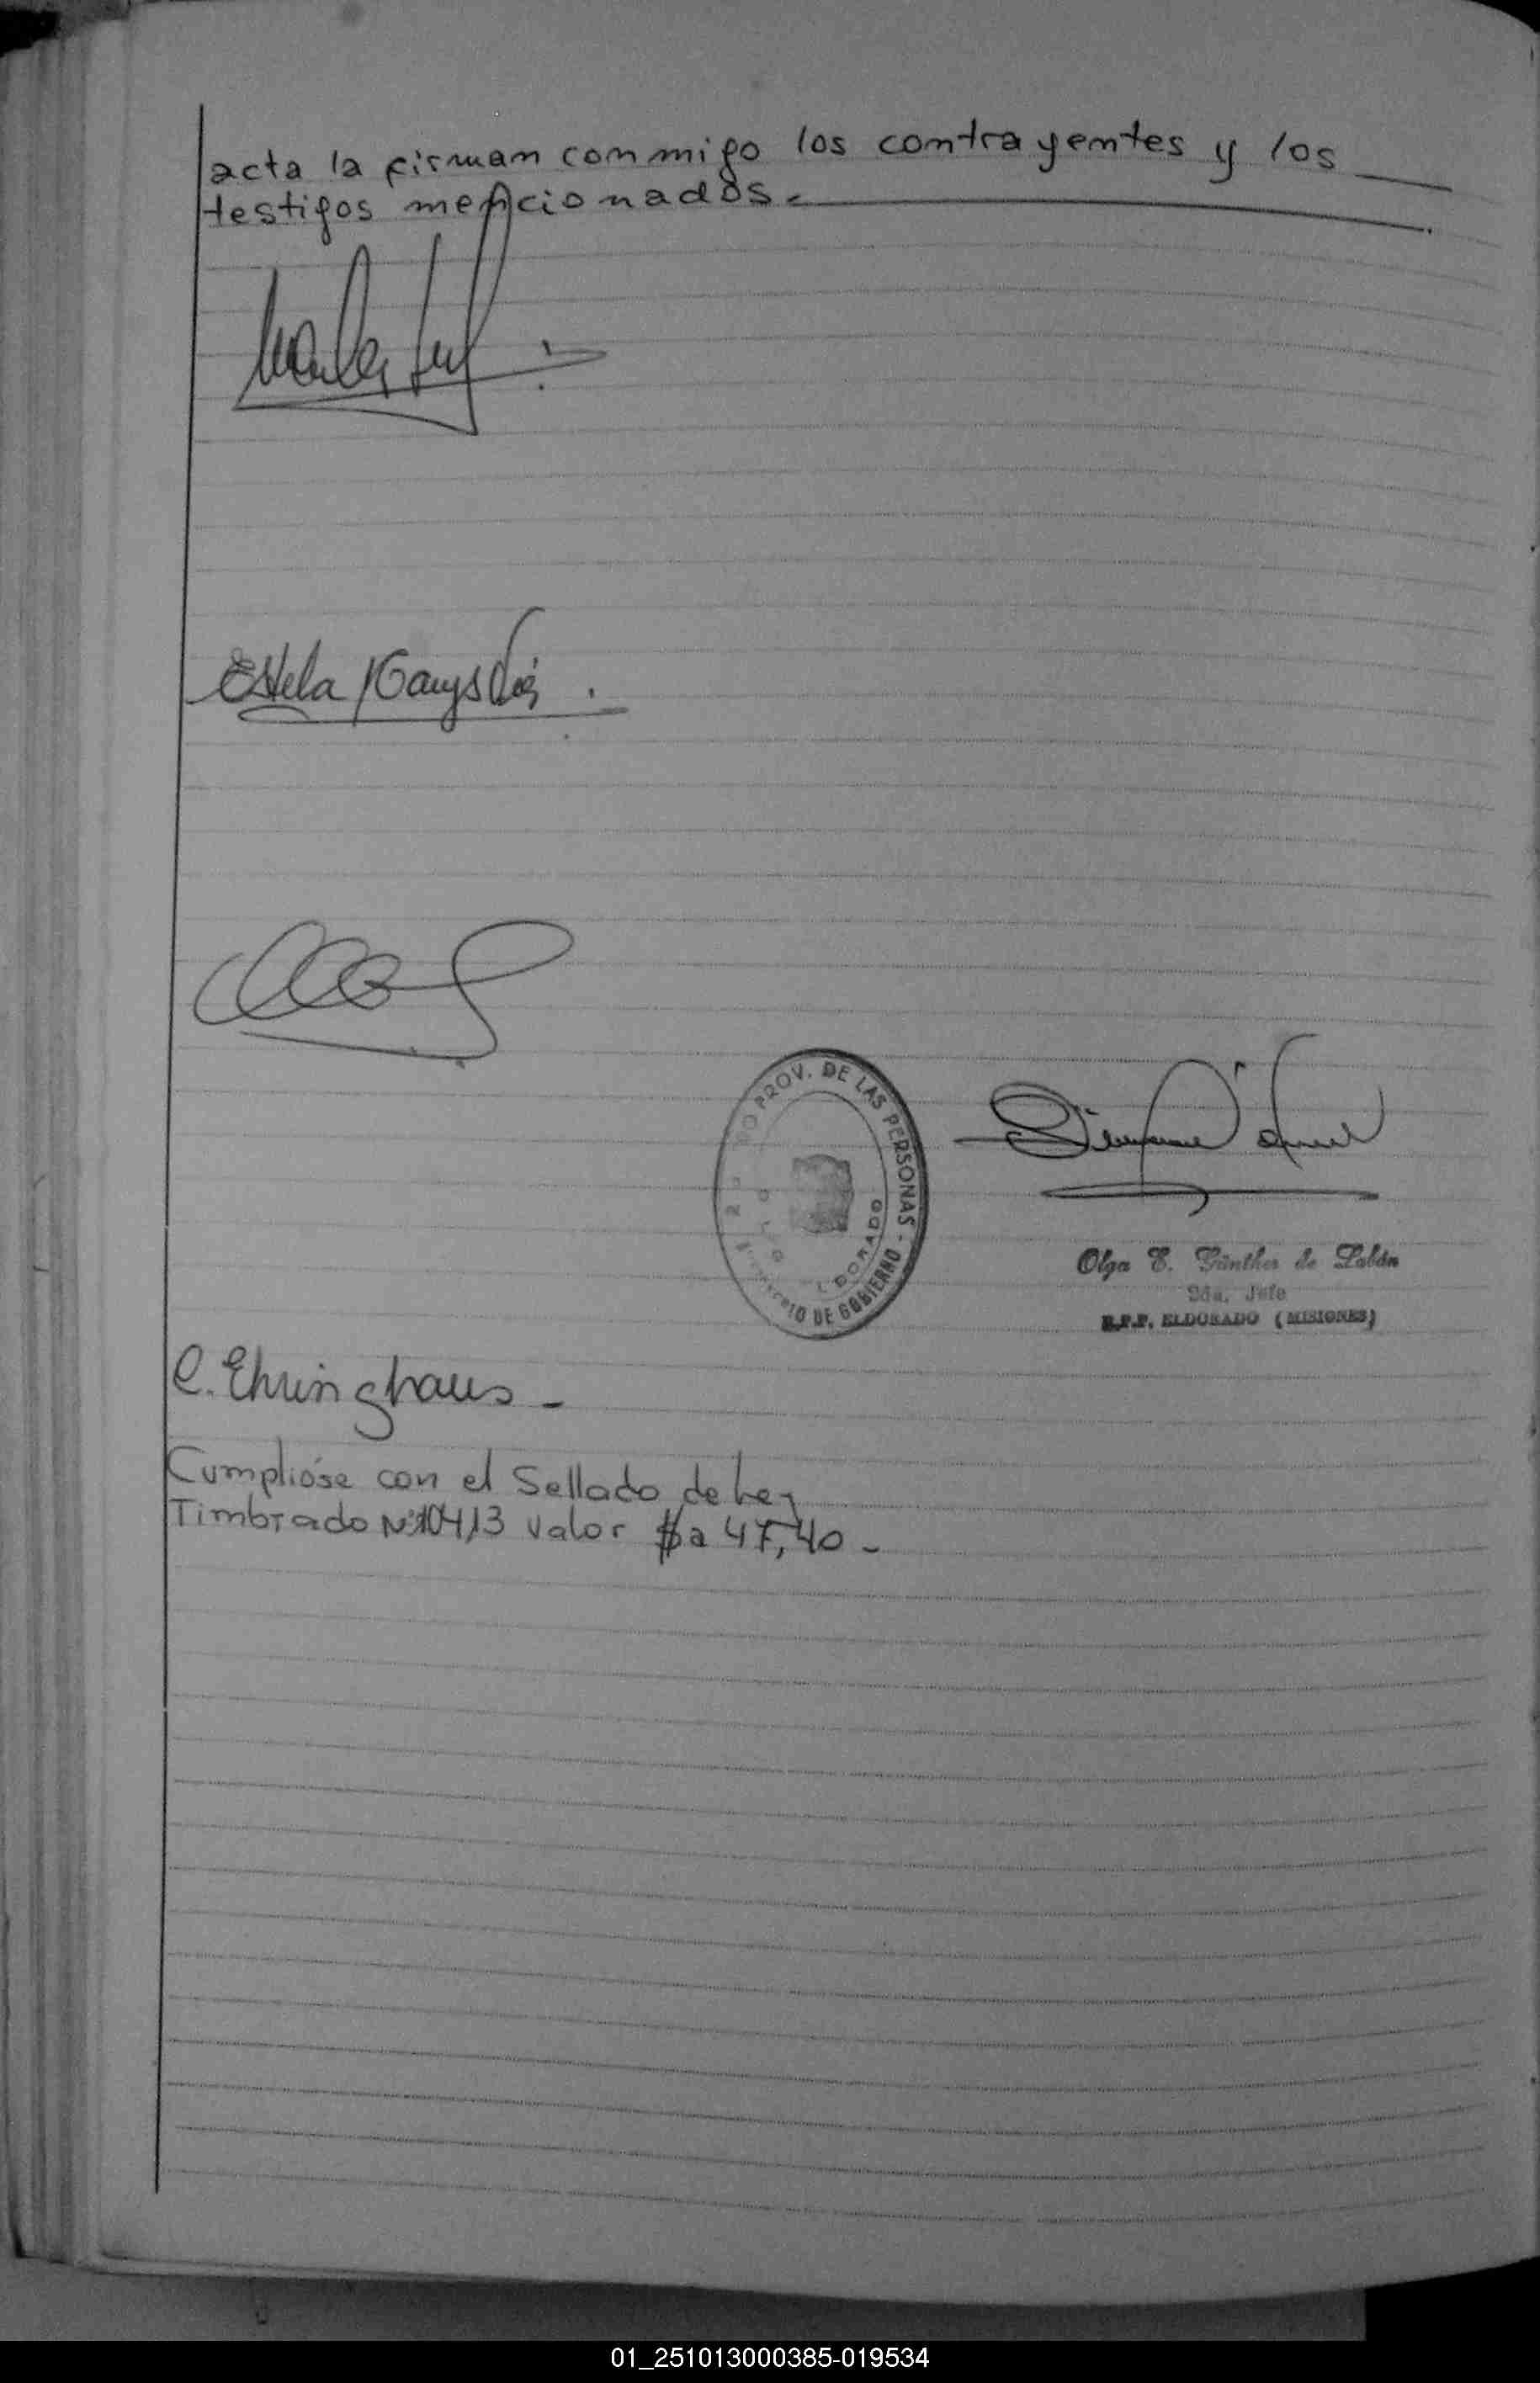 acta la firman conmigo los contrayentes y los
testigos mencionados.
Estela
PROV. DE LAS PERSONAS - DE GOBIERNO
Olga E. Günther de
2da. Jefe
R.P.P. ELDORADO (MISIONES)
C. Ehringhaus -
Cumplióse con el Sellado de Ley
Timbrado Nº 10413 valor $a 47,40 -
01_251013000385-019534